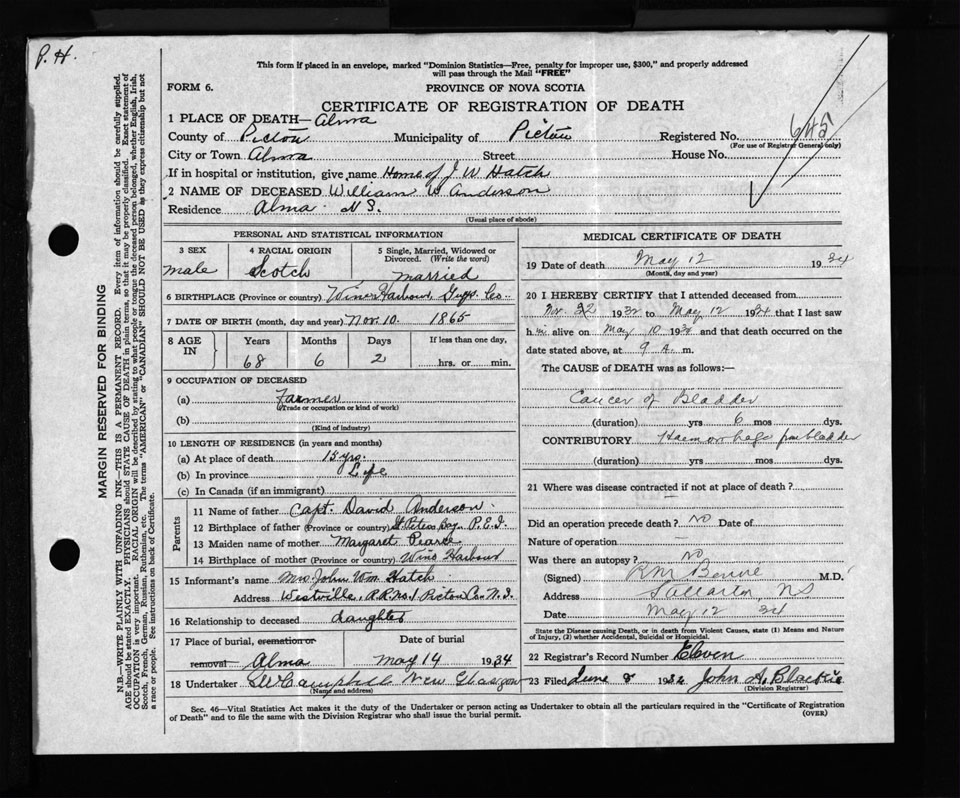 P. H.
This form if placed in an envelope, marked "Dominion Statistics—Free, penalty for improper use, $300," and properly addressed
will pass through the Mail "FREE"
FORM 6.
PROVINCE OF NOVA SCOTIA
CERTIFICATE OF REGISTRATION OF DEATH
1 PLACE OF DEATH— Alma
County of Pictou Municipality of Pictou Registered No. 645
(For use of Registrar General only)
City or Town Alma Street House No.
If in hospital or institution, give name Home of J W Hatch
2 NAME OF DECEASED William W Anderson
Residence Alma N S.
(Usual place of abode)
PERSONAL AND STATISTICAL INFORMATION
3 SEX 4 RACIAL ORIGIN 5 Single, Married, Widowed or
Divorced. (Write the word)
male Scotch married
6 BIRTHPLACE (Province or country) Wine Harbour, Guys. Co.
7 DATE OF BIRTH (month, day and year) Nov. 10. 1865
8 AGE IN Years Months Days If less than one day,
68 6 2 hrs. or min.
9 OCCUPATION OF DECEASED
(a) Farmer
(Trade or occupation or kind of work)
(b)
(Kind of industry)
10 LENGTH OF RESIDENCE (in years and months)
(a) At place of death 15 yrs.
(b) In province Life
(c) In Canada (if an immigrant)
Parents
11 Name of father Capt. David Anderson
12 Birthplace of father (Province or country) St Peters Bay P.E.I.
13 Maiden name of mother Margaret Pearce
14 Birthplace of mother (Province or country) Wine Harbour
15 Informant's name Mrs. John Wm. Hatch
Address Westville, R.R. No. 1 Pictou Co. N.S.
16 Relationship to deceased daughter
17 Place of burial, cremation or Date of burial
removal Alma May 14 1934
18 Undertaker Campbell New Glasgow
(Name and address)
MEDICAL CERTIFICATE OF DEATH
19 Date of death May 12 1934
(Month, day and year)
20 I HEREBY CERTIFY that I attended deceased from
Nov. 22 193 to May 12 1934 that I last saw
h im alive on May 10 193 and that death occurred on
date stated above, at 9 A. m.
The CAUSE of DEATH was as follows:—
Cancer of Bladder
(duration) yrs 6 mos dys.
CONTRIBUTORY Haemorrhage from bladder
(duration) yrs mos dys.
21 Where was disease contracted if not at place of death?
Did an operation precede death? NO Date of
Nature of operation
Was there an autopsy? No
(Signed) R M M.D.
Address N S
Date May 12 34
State the Disease causing Death, or in death from Violent Causes, state (1) Means and Nature
of Injury, (2) whether Accidental, Suicidal or Homicidal.
22 Registrar's Record Number Eleven
23 Filed June 2 193 John A. Blackie
(Division Registrar)
Sec. 46—Vital Statistics Act makes it the duty of the Undertaker or person acting as Undertaker to obtain all the particulars required in the "Certificate of Registration
of Death" and to file the same with the Division Registrar who shall issue the burial permit.
(OVER)
MARGIN RESERVED FOR BINDING
N.B.—WRITE PLAINLY WITH UNFADING INK—THIS IS A PERMANENT RECORD. Every item of information should be carefully supplied.
AGE should be stated EXACTLY. PHYSICIANS should STATE CAUSE OF DEATH in plain terms, so that it may be properly classified. Exact statement of
OCCUPATION is very important. RACIAL ORIGIN will be described by stating to what people or tongue the deceased person belonged, whether English, Irish,
Scotch, French, German, Russian, Ruthenian, etc. The terms "AMERICAN" or "CANADIAN" SHOULD NOT BE USED as they express citizenship but not
a race or people. See instructions on back of Certificate.